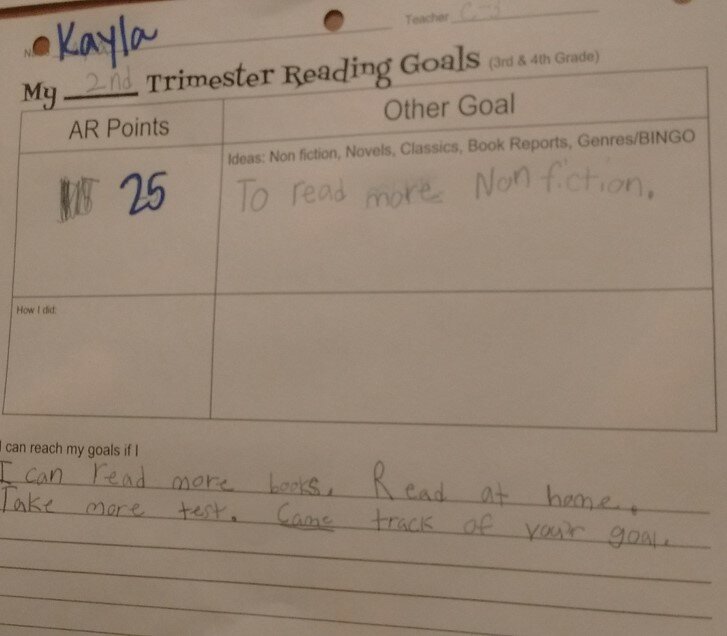 Teacher
Kayla
My 2nd Trimester Reading Goals (3rd & 4th Grade)
AR Points
Other Goal
Ideas: Non fiction, Novels, Classics, Book Reports, Genres/BINGO
25
To read more Non fiction.
How I did:
I can reach my goals if I
I can read more books. Read at home.
Take more test. Came track of your goal.